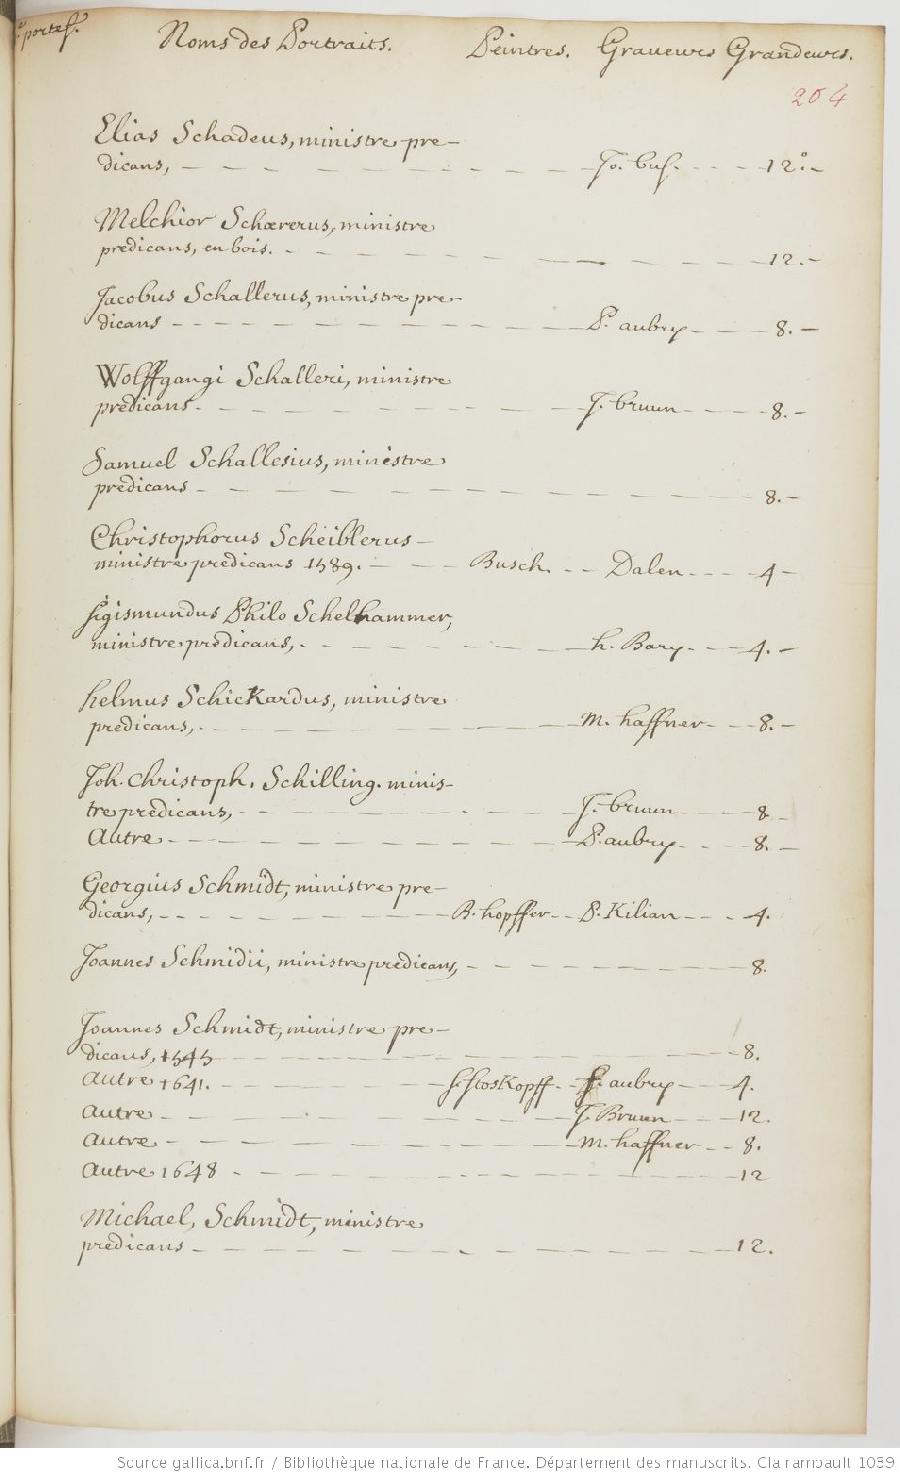 portef. Noms des Portraits. Peintres. Graveurs Grandeurs.
204
Elias Schadeus, ministre pre-
dicans, Jo. buf. 12.°
Melchior Schœrerus, ministre
predicans, en bois. 12.
Jacobus Schallerus, ministre pre-
dicans P. aubry 8.
Wolffgangi Schalleri, ministre
predicans. J. bruun 8.
Samuel Schallesius, ministre
predicans 8.
Christophorus Scheiblerus
ministre predicans 1589. Busch. Dalen 4
Sigismundus Philo Schelhammer,
ministre predicans, h. Bary. 4.
helmus Schickardus, ministre
predicans, m. haffner 8.
Joh. christoph. Schilling. minis-
tre predicans, J. bruun 8
Autre P. aubry 8.
Georgius Schmidt, ministre pre-
dicans, A. hopffer P. Kilian 4.
Joannes Schmidii, ministre predicans, 8.
Joannes Schmidt, ministre pre-
dicans, 1545 8.
Autre 1641. S. Stoskopff P. aubry 4.
Autre J. Bruun 12.
Autre m. haffner 8.
Autre 1648 12
Michael, Schmidt, ministre
predicans 12.
Source gallica.bnf.fr / Bibliothèque nationale de France. Département des manuscrits. Clairambault 1039